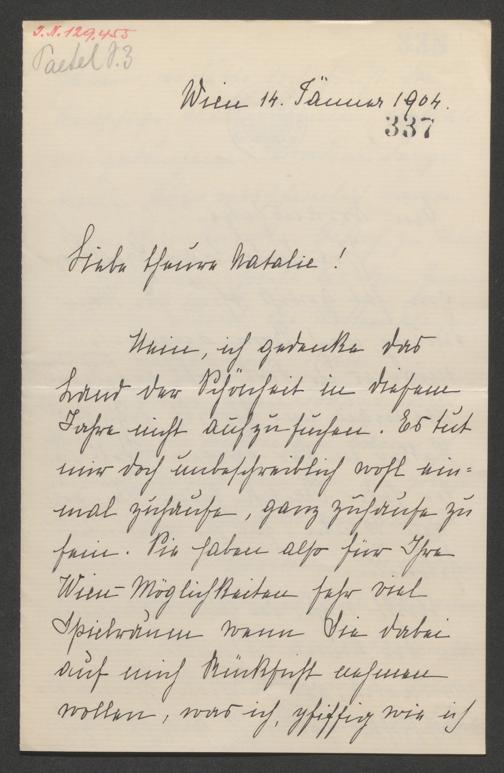 I.N. 129.455
Paetel N.3
Wien 14. Jänner 1904.
337
Liebe theure Natalie!
Nein, ich gedenke das
Land der Schönheit in diesem
Jahre nicht aufzusuchen. Es tut
mir doch unbeschreiblich wohl ein=
mal zuhause, ganz zuhause zu
sein. Sie haben also für Ihre
Wien-Möglichkeiten sehr viel
Spielraum wenn Sie dabei
auf mich Rücksicht nehmen
wollen, was ich, pfiffig wie ich